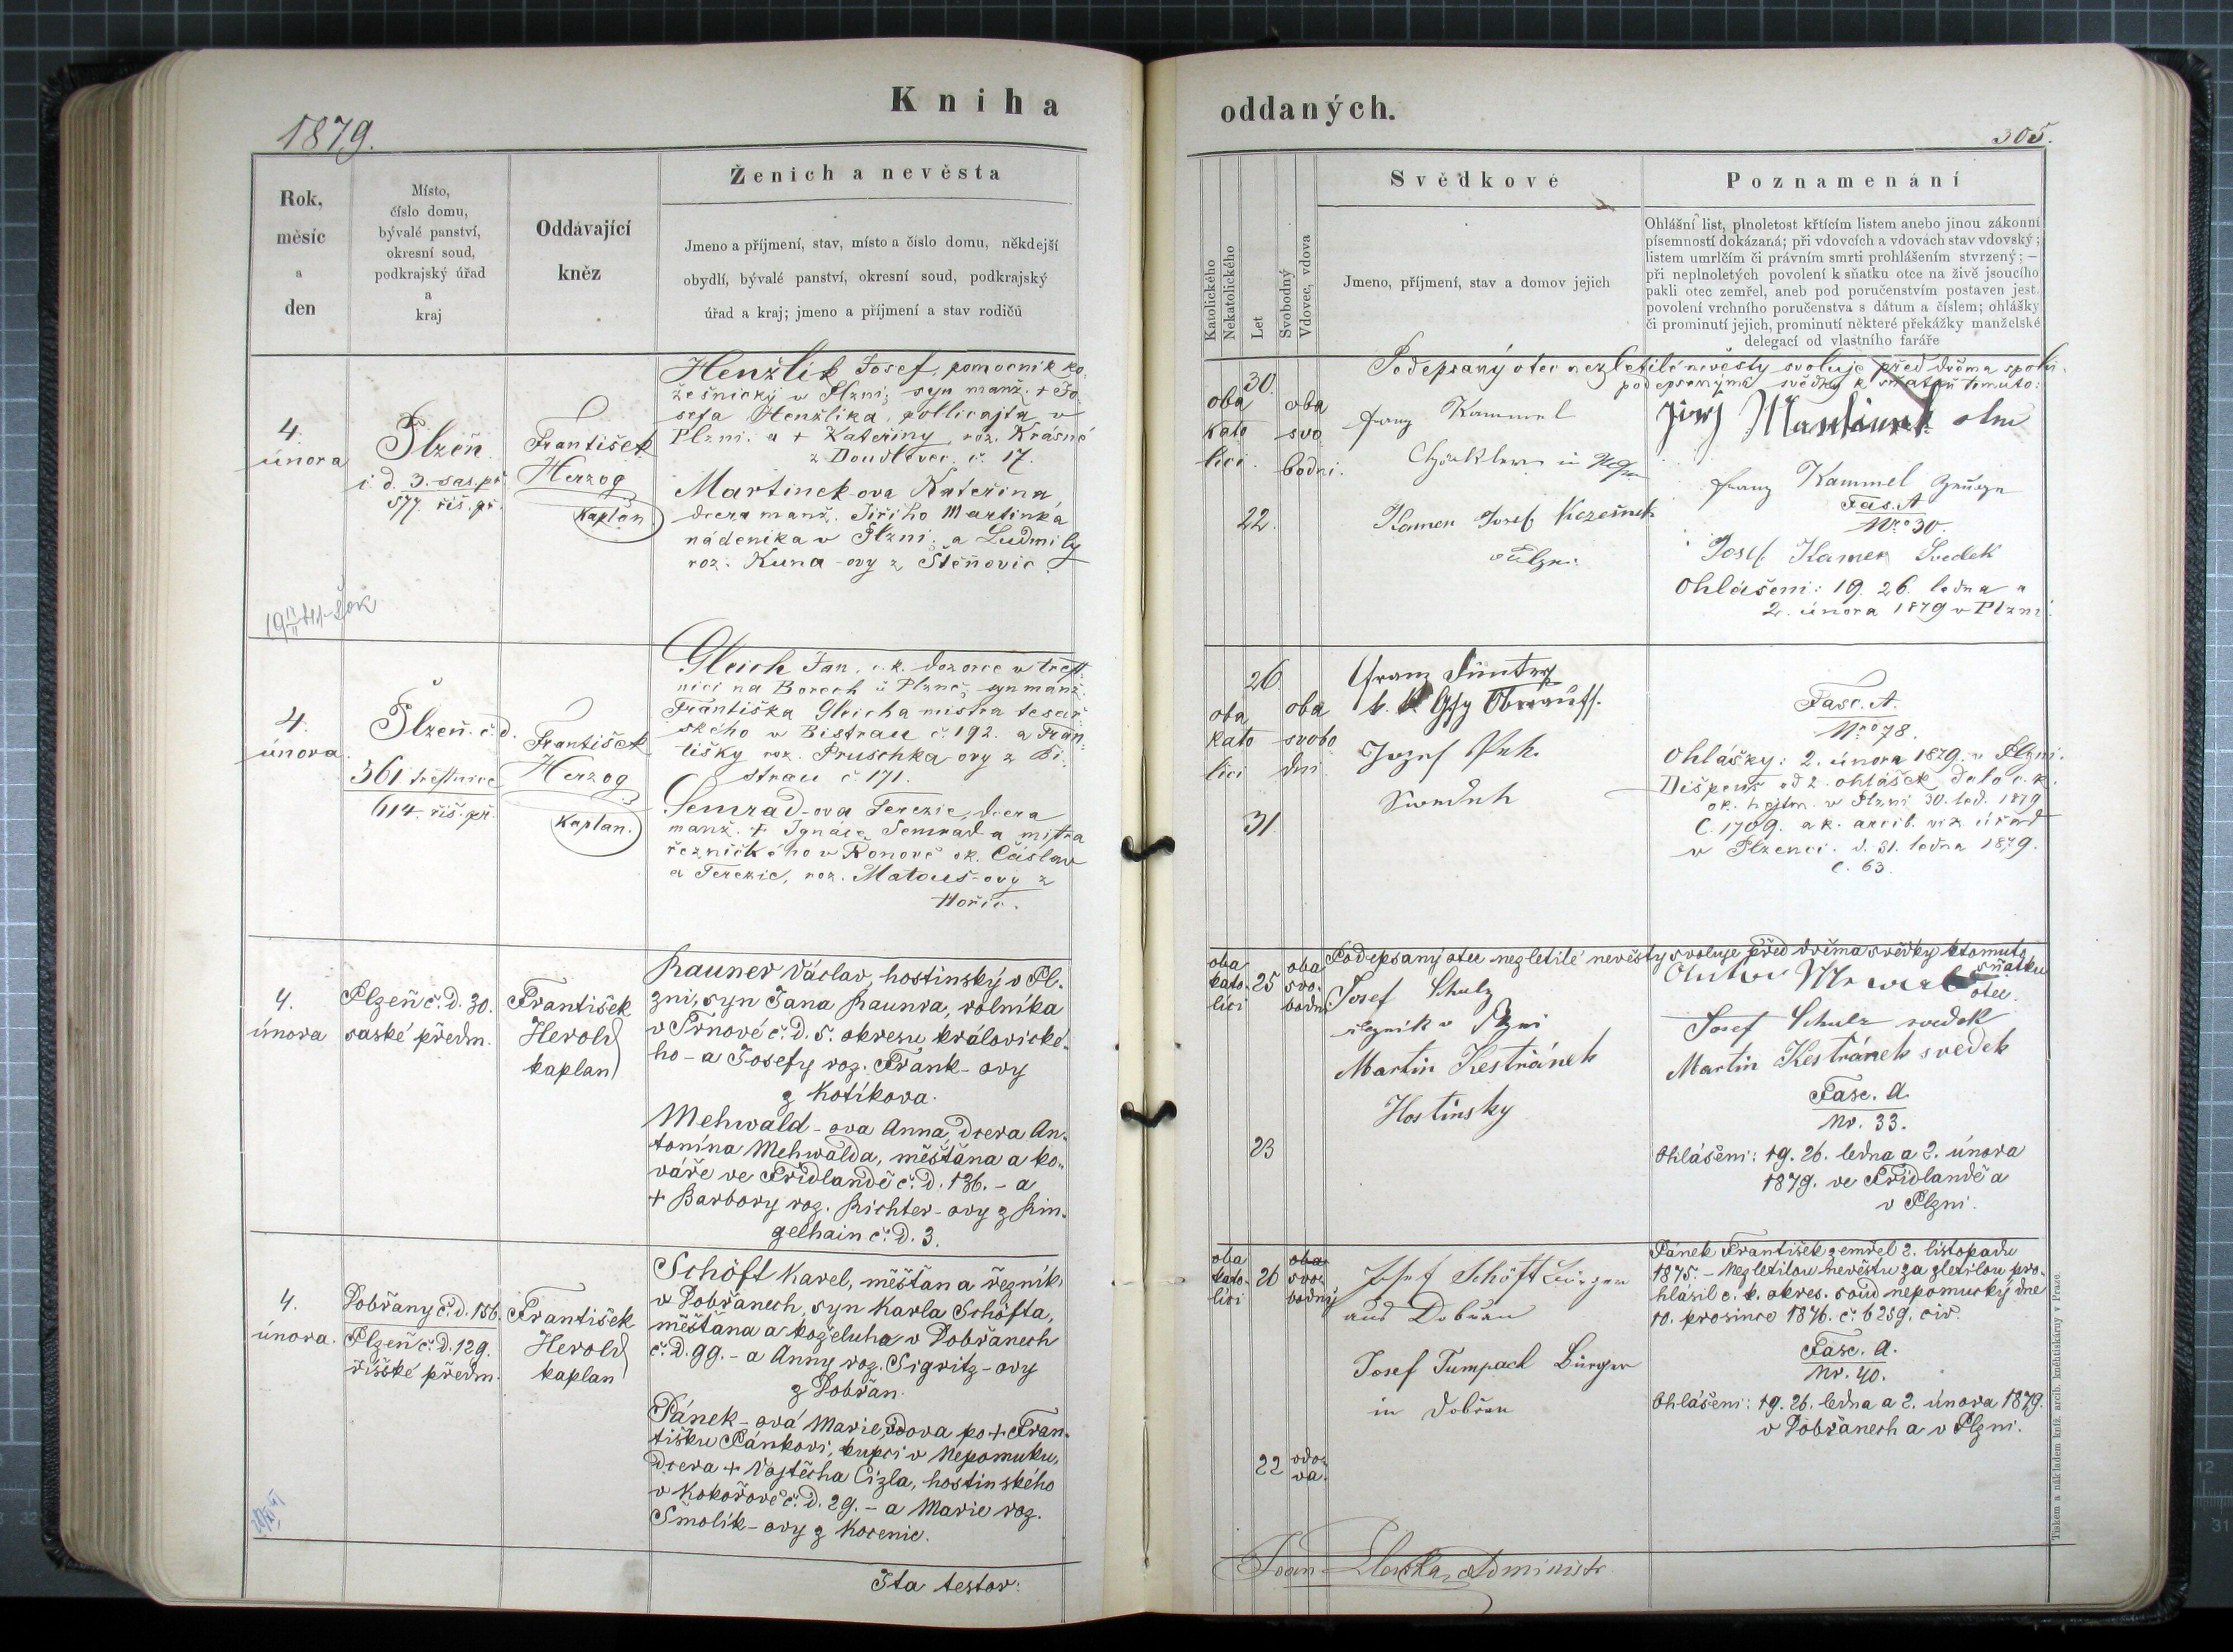 Kniha
oddaných.
1879.
305.
Rok,
měsíc
a
den
Místo,
číslo domu,
bývalé panství,
okresní soud,
podkrajský úřad
a
kraj
Oddávající
kněz
Ženich a nevěsta
Jmeno a příjmení, stav, místo a číslo domu, někdejší
obydlí, bývalé panství, okresní soud, podkrajský
úřad a kraj; jmeno a příjmení a stav rodičů
Katolického
Nekatolického
Let
Svobodný
Vdovec, vdova
Svědkové
Jmeno, příjmení, stav a domov jejich
Poznamenání
Ohlášní list, plnoletost křtícím listem anebo jinou zákonní
písemností dokázaná; při vdovcích a vdovách stav vdovský;
listem umrlčím či právním smrti prohlášením stvrzený; —
při neplnoletých povolení k sňatku otce na živě jsoucího
pakli otec zemřel, aneb pod poručenstvím postaven jest
povolení vrchního poručenstva s dátum a číslem; ohlášky
či prominutí jejich, prominutí některé překážky manželské
delegací od vlastního faráře
4.
února
Plzeň
č. d. 3. sas. př.
577. řiš. př.
František
Herzog
Kaplan
Henžlik Josef, pomocník ko-
žešnický v Plzni; syn manž. + Jo-
sefa Henžlika, policajta v
Plzni a + Kateřiny, roz. Krásné
z Doudlevec č. 17.
Martinek-ova Kateřina
dcera manž. Jiřího Martinka
nádeníka v Plzni a Ludmily
roz. Kuna-ovy z Štěnovic
oba
kato
lici
30.
22.
oba
svo
bodni.
Podepsaný otec nezletilé nevěsty svoluje před dvěma spolu
podepsanými svědky k sňatku tomuto:
Franz Kammel
Kamer Josef Kožešník
Jiří Martinek
Franz Kammel
Fas. A
Nro 30.
Josef Kamer Svedek
Ohlášeni: 19. 26. ledna a
2. února 1879 v Plzni.
4.
února.
Plzeň č. d.
361 trestnice
114. řiš. př.
František
Herzog
Kaplan.
Gleich Jan, c. k. dozorce v trest-
nici na Borech u Plzně, syn manž.
Františka Gleicha mistra tesař-
ského v Bistrau č. 192. a Fran-
tišky roz. Pruschka-ovy z Bi-
strau č. 171.
Semrad-ova Terezie, dcera
manž. + Ignáce Semrad-a mistra
řezničkého v Ronově ok. Čáslav
a Terezie, roz. Matouš-ovy z
Hořic.
oba
kato
lici
26.
31.
oba
svobo
dni.
Franz
Jozef
Swedek
Fasc. A.
Nro 78.
Ohlášky: 2. února 1879. v Plzni.
Dišpens od 2. ohlášek dalo c. k.
ok. hejtm. v Plzni 30. led. 1879
C. 1709. a k. arcib. vik. úřad
v Plzenci. d. 31. ledna 1879.
č. 63.
4.
února
Plzeň č. d. 30.
saské předm.
František
Herold
kaplan
Rauner Václav, hostinský v Pl-
zni, syn Jana Raunra, rolníka
v Trnové č. d. 5. okresu královické-
ho - a Josefy roz. Frank-ovy
z Kotíkova.
Mehwald-ova Anna, dcera An-
tonína Mehwalda, měšťana a ko-
váře ve Frídlandě č. d. 136. - a
+ Barbory roz. Richter-ovy z Rin-
gelhain č. d. 3.
oba
kato-
lici
25
23
oba
svo-
bodni
Podepsaný otec nezletilé nevěsty svoluje před dvěma svědky ktomuto
sňatku
Josef Schulz
řezník v Plzni
Martin Kestřánek
Hostinsky
otec.
Josef Schulz svedek
Martin Kestřánek svedek
Fasc. A.
Nr. 33.
Ohlášeni: 19. 26. ledna a 2. února
1879. ve Frídlandě a
v Plzni.
4.
února.
Dobřany č. d. 156.
Plzeň č. d. 129.
říšské předm.
František
Herold
kaplan
Schöft Karel, měšťan a řezník
v Dobřanech, syn Karla Schöfta,
měšťana a koželuha v Dobřanech
č. d. 99. - a Anny roz. Sigritz-ovy
z Dobřan.
Pánek-ová Marie, vdova po + Fran-
tišku Pánkovi, kupci v Nepomuku,
dcera + Vojtěcha Cizla, hostinského
v Kokořově č. d. 29. - a Marie roz.
Smolík-ovy z Kocenic.
oba
kato-
lici
26
22
oba
svo-
bodný
vdo-
va.
Josef Schöft Bürger
aus Dobřan
Josef Tumpach Bürger
in Dobřan
Pánek František zemřel 2. listopadu
1875. - Nezletilou nevěstu za zletilou pro-
hlásil c. k. okres. soud nepomucký dne
10. prosince 1876. č. 6259. civ.
Fasc. A.
Nr. 40.
Ohlášeni: 19. 26. ledna a 2. února 1879.
v Dobřanech a v Plzni.
Ita testor:
Administr
Tiskem a nákladem kníž. arcib. knihtiskárny v Praze.